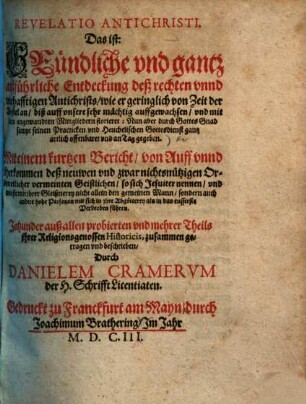 REVELATIO ANTICHRISTI,
Das ist:
GRündliche vnd gantz
außführliche Entdeckung deß rechten vnnd
warhafftigen Antichrists/ wie er geringlich von Zeit der
Apostolen/ biß auff vnsere sehr mächtig auffgewachsen/ vnd mit
angewandten Mitgliedern floriert: Nun aber durch Gottes Gnad
sampt seinen Practicken vnd Heuchelischen Gottesdienst gantz
offenbaret vnd an Tag gegeben.
Mit einem kurtzen Bericht/ von Auff vnnd
Herkommen deß neuwen vnd zwar nichtsnützigen
vermeinten Geistlichen/ so sich Jesuiter nennen/ vnd
mit jhrer Gleißnerey nicht allein den gemeinen Mann/ sondern auch
andere hohe Personen mit sich in das eusserste
Verderben führen.
Jetzunder auß allen probierten vnd mehrer Theils
jhrer Religionsgenossen Historicis, zusammen ge-
tragen vnd beschrieben/
Durch
DANIELEM CRAMERVM
der H. Schrifft Licentiaten.
Gedruckt zu Franckfurt am Mayn/ durch
Joachimum Brathering/ Im Jahr
M. D. C. III.